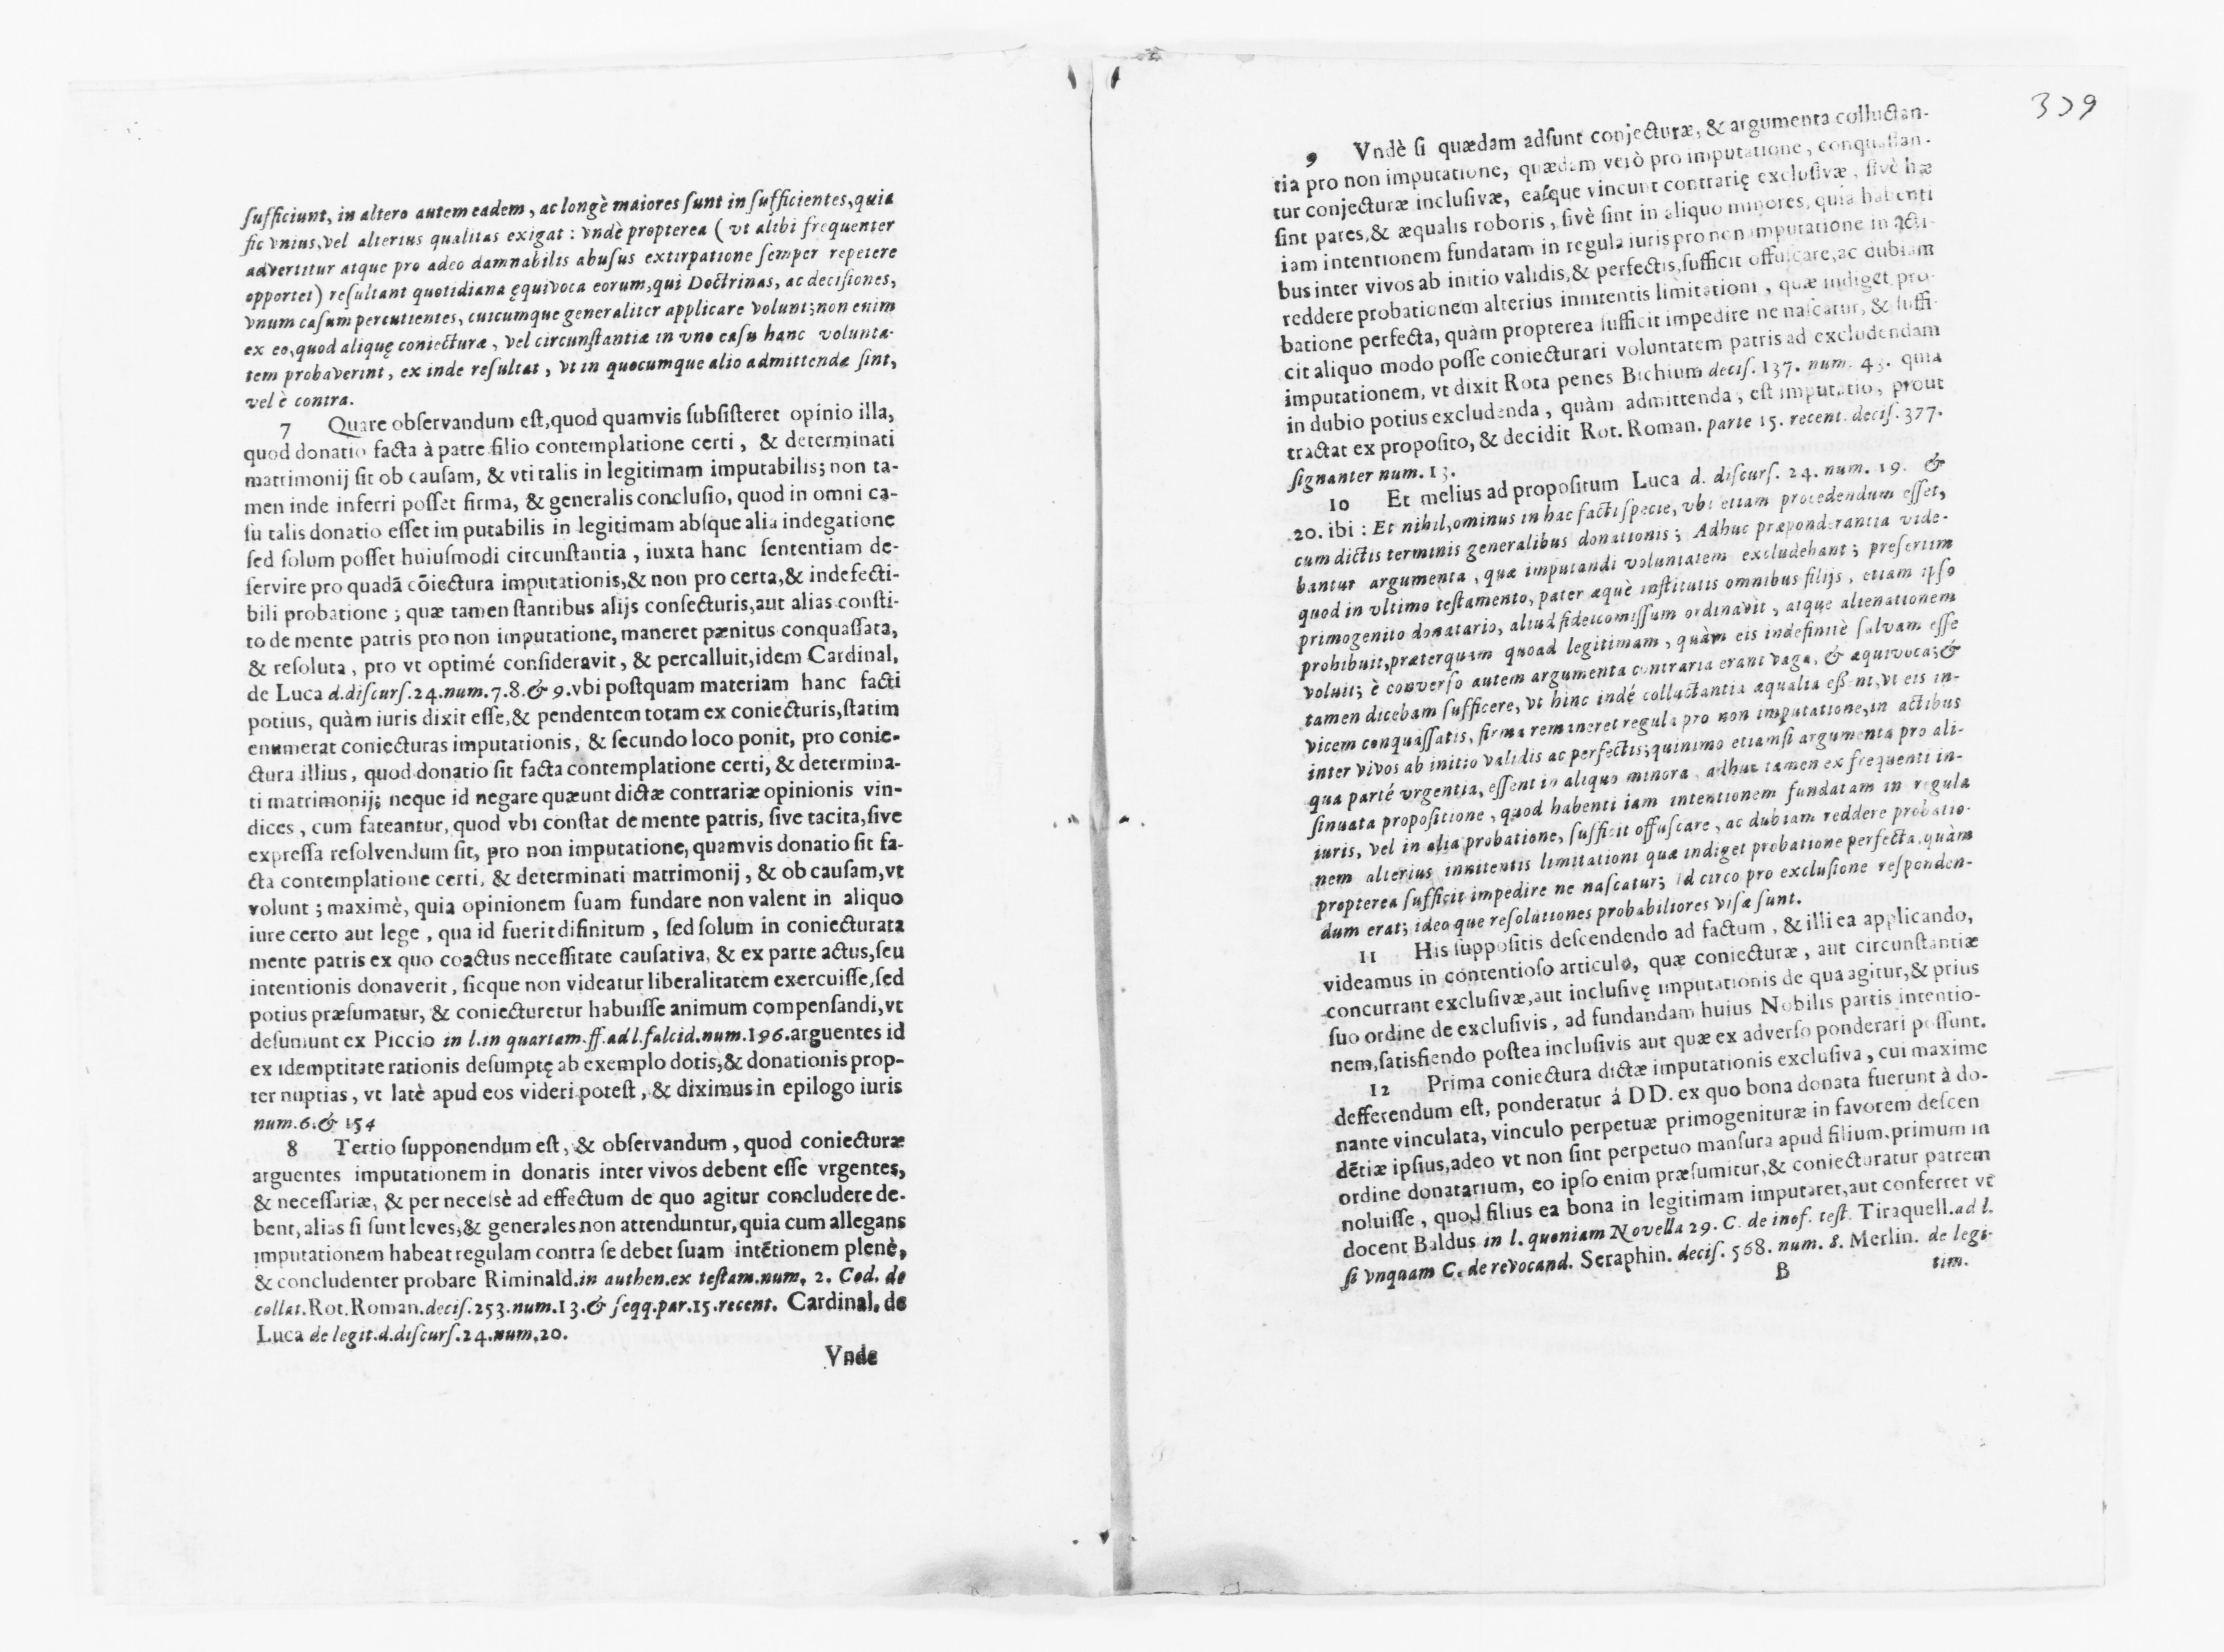 sufficiunt, in altero autem eadem, ac longè maiores sunt in sufficientes, quia
sic vnius, vel alterius qualitas exigat : vndè propterea ( vt alibi frequenter
advertitur atque pro adeo damnabilis abusus extirpatione semper repetere
opportet ) resultant quotidiana ęquivoca eorum, qui Doctrinas, ac decisiones,
vnum casum percutientes, cuicumque generaliter applicare volunt; non enim
ex eo, quod aliquę coniecturæ, vel circunstantiæ in vno casu hanc volunta-
tem probaverint, ex inde resultat, vt in quocumque alio admittendæ sint,
vel è contra.
7 Quare observandum est, quod quamvis subsisteret opinio illa,
quod donatio facta à patre filio contemplatione certi, & determinati
matrimonij sit ob causam, & vti talis in legitimam imputabilis; non ta-
men inde inferri posset firma, & generalis conclusio, quod in omni ca-
sù talis donatio esset im putabilis in legitimam absque alia indegatione
sed solum posset huiusmodi circunstantia, iuxta hanc sententiam de-
servire pro quadã cõiectura imputationis, & non pro certa, & indefecti-
bili probatione ; quæ tamen stantibus alijs consecturis, aut alias consti-
to de mente patris pro non imputatione, maneret pænitus conquassata,
& resoluta, pro vt optimé consideravit, & percalluit, idem Cardinal,
de Luca d. discurs. 24. num. 7. 8. & 9. vbi postquam materiam hanc facti
potius, quàm iuris dixit esse, & pendentem totam ex coniecturis, statim
enumerat coniecturas imputationis, & secundo loco ponit, pro conie-
ctura illius, quod donatio sit facta contemplatione certi, & determina-
ti matrimonij; neque id negare quæunt dictæ contrariæ opinionis vin-
dices, cum fateantur, quod vbi constat de mente patris, sive tacita, sive
expressa resolvendum sit, pro non imputatione, quamvis donatio sit fa-
cta contemplatione certi, & determinati matrimonij, & ob causam, vt
volunt ; maximè, quia opinionem suam fundare non valent in aliquo
iure certo aut lege, qua id fuerit difinitum, sed solum in coniecturata
mente patris ex quo coactus necessitate causativa, & ex parte actus, seu
intentionis donaverit, sicque non videatur liberalitatem exercuisse, sed
potius præsumatur, & coniecturetur habuisse animum compensandi, vt
desumunt ex Piccio in l. in quartam. ff. ad l. falcid. num. 196. arguentes id
ex idemptitate rationis desumptę ab exemplo dotis, & donationis prop-
ter nuptias, vt latè apud eos videri potest, & diximus in epilogo iuris
num. 6. & 154
8 Tertio supponendum est, & observandum, quod coniecturæ
arguentes imputationem in donatis inter vivos debent esse vrgentes,
& necessariæ, & per necesè ad effectum de quo agitur concludere de-
bent, alias si sunt leves, & generales non attenduntur, quia cum allegans
imputationem habeat regulam contra se debet suam intẽtionem plenè,
& concludenter probare Riminald. in authen. ex testam. num. 2. Cod. de
collat. Rot. Roman. decis. 253. num. 13. & seqq. par. 15. recent. Cardinal. de
Luca de legit. d. discurs. 24. num. 20.
Vnde
339
9 Vndè si quædam adsunt conjecturæ, & argumenta colluctan-
tia pro non imputatione, quædam verò pro imputatione, conquassan-
tur conjecturæ inclusivæ, easque vincunt contrarię exclusivæ, sivè hæ
sint pares, & æqualis roboris, sivè sint in aliquo minores, quia habenti
iam intentionem fundatam in regula iuris pro non imputatione in acti-
bus inter vivos ab initio validis, & perfectis, sufficit offuscare, ac dubiam
reddere probationem alterius innitentis limitationi, quæ indiget pro-
batione perfecta, quàm propterea sufficit impedire ne nascatur, & suffi-
cit aliquo modo posse coniecturari voluntatem patris ad excludendam
imputationem, vt dixit Rota penes Bichium decis. 137. num. 43. quia
in dubio potius excludenda, quàm admittenda, est imputatio, prout
tractat ex proposito, & decidit Rot. Roman. parte 15. recent. decis. 377.
signanter num. 13.
10 Et melius ad propositum Luca d. discurs. 24. num. 19. &
20. ibi : Et nihil, ominus in hac facti specie, vbi etiam procedendum esset,
cum dictis terminis generalibus donationis; Adhuc præponderantia vide-
bantur argumenta, quæ imputandi voluntatem excludebant ; presertim
quod in vltimo testamento, pater æquè institutis omnibus filijs, etiam ipso
primogenito donatario, aliud fideicomissum ordinavit, atque alienationem
prohibuit, præterquam quoad legitimam, quàm eis indefinitè salvam esse
voluit; è converso autem argumenta contraria erant vaga, & æquivoca; &
tamen dicebam sufficere, vt hinc indé colluctantia æqualia essent, vt eis in-
vicem conquassatis, firma remaneret regula pro non imputatione, in actibus
inter vivos ab initio validis ac perfectis; quinimo etiamsi argumenta pro ali-
qua parté vrgentia, essent in aliquo minora, adhuc tamen ex frequenti in-
sinuata propositione, quod habenti iam intentionem fundatam in regula
iuris, vel in alia probatione, sufficit offuscare, ac dubiam reddere probatio-
nem alterius innitentis limitationi quæ indiget probatione perfecta, quàm
propterea sufficit impedire ne nascatur; Id circo pro exclusione responden-
dum erat; ideo que resolutiones probabiliores visæ sunt.
11 His suppositis descendendo ad factum, & illi ea applicando,
videamus in contentioso articulo, quæ coniecturæ, aut circunstantiæ
concurrant exclusivæ, aut inclusivę imputationis de qua agitur, & prius
suo ordine de exclusivis, ad fundandam huius Nobilis partis intentio-
nem, satisfiendo postea inclusivis aut quæ ex adverso ponderari possunt.
12 Prima coniectura dictæ imputationis exclusiva, cui maxime
defferendum est, ponderatur á DD. ex quo bona donata fuerunt à do-
nante vinculata, vinculo perpetuæ primogenituræ in favorem descen
dẽtiæ ipsius, adeo vt non sint perpetuo mansura apud filium, primum in
ordine donatarium, eo ipso enim præsumitur, & coniecturatur patrem
noluisse, quod filius ea bona in legitimam imputaret, aut conferret vt
docent Baldus in l. quoniam Novella 29. C. de inof. test. Tiraquell. ad l.
si vnquam C. de revocand. Seraphin. decis. 568. num. 8. Merlin. de legi-
B
tim.